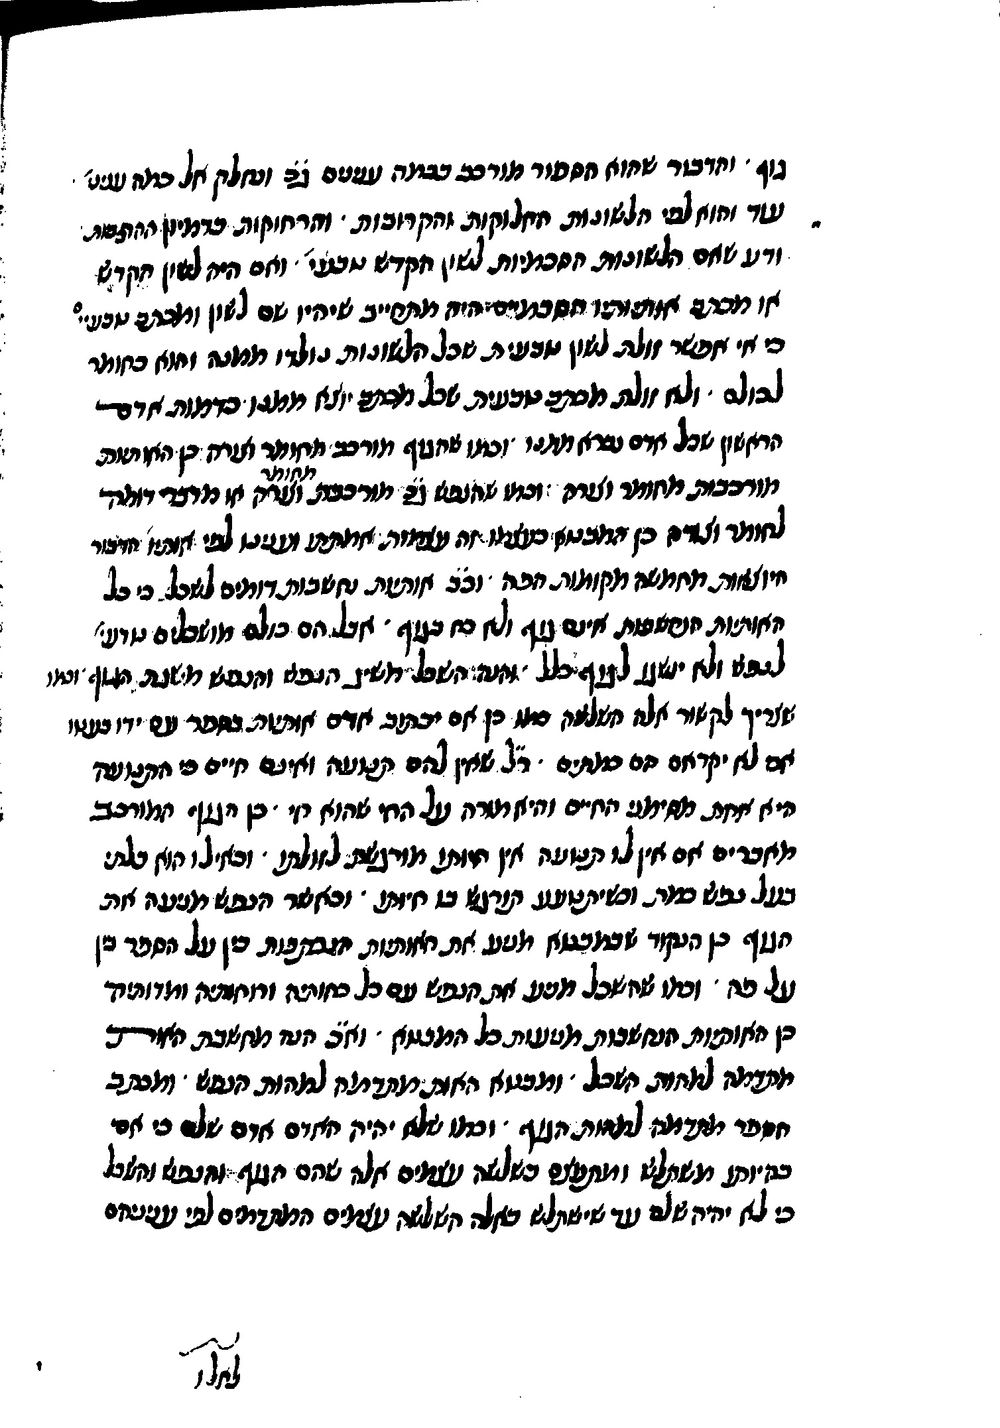 גוף · והדבור שהוא הספור מורכב מכמה ענינים ג״כ ונחלק אל כמה עניני׳
עוד והוא לפי הלשונות החלוקות והקרובות · והרחוקות כדמיון ההתמות
ודע שאם הלשונות הסכמיות לשון הקדש טבעי׳ · ואם היה לשון הקדש
או מכתב אותיותיו הסכמיים היה מתחייב שיהיו שם לשון ומכתב טבעיי׳
כי אי אפשר זולת לשון טבעית שכל הלשונות נולדו ממנה והוא כחומר
לכולם · ולא זולת מכתב טבעית שכל מכתב יוצא ממנו כדמות אדם
הראשון שכל אדם נברא ממנו · וכמו שהגוף מורכב מחומר וצורה כן האותיות
מורכבות מחומר וצורה · וכמו שהנפש ג״כ מורכבת מחומר וצורה או מדברי דומה
לחומר וצורה כן המבטא בעצמו זה עצמות אמתתו וענינו לפי אותיו׳ הדבור
היוצאות מחמשה מקומות הפה · וכ״כ אותיות נחשבות דומים לשכל כי כל
האותיות הנחשבות אינם גוף ולא כח בגוף · אבל הם כולם מושכלים טבעי׳
לנפש ולא ישיגן לגוף כלל · והנה השכל משיג הנפש והנפש משגת הגוף · וכמו
שצריך לקשור אלה השלשה כמו כן אם יכתוב אדם אותיות בספר עם ידו בעטו
אם לא יקראם הם כמתים · ר״ל שאין להם תנועה ואינם חיים כי התנועה
היא אחת מסימני החיים והיא מורה על החי שהוא חי · כן הגוף המורכב
מאברים אם אין לו תנועה אין חיותו מורגשת לזולתו · וכאילו הוא בלתי
בעל נפש כמת וכשיתנועע תורגש בו חיותו · וכאשר הנפש מניעה את
הגוף כן הנקוד שבמבטא מניע את האותיות הנבקעות בין על הספר בין
על פה · וכמו שהשכל מניע את הנפש עם כל כחותיה ורוחותיה ומדותיה
כן האותיות הנחשבות מניעות כל המבטא · וא״כ הנה מחשבת האות
מתדמה למהות השכל · ומבטא האות מתדמה למהות הנפש · ומכתב
הספר מתדמה למהות הגוף · וכמו שלא יהיה האדם אדם שלם כי אם
בהיותו משתלש ומתעצם בשלשה עצמים אלה שהם הגוף והנפש והשכל
כי לא יהיה שלם עד שישתלש באלה השלשה עצמים המתדמים לפי עניניהם
לאלו